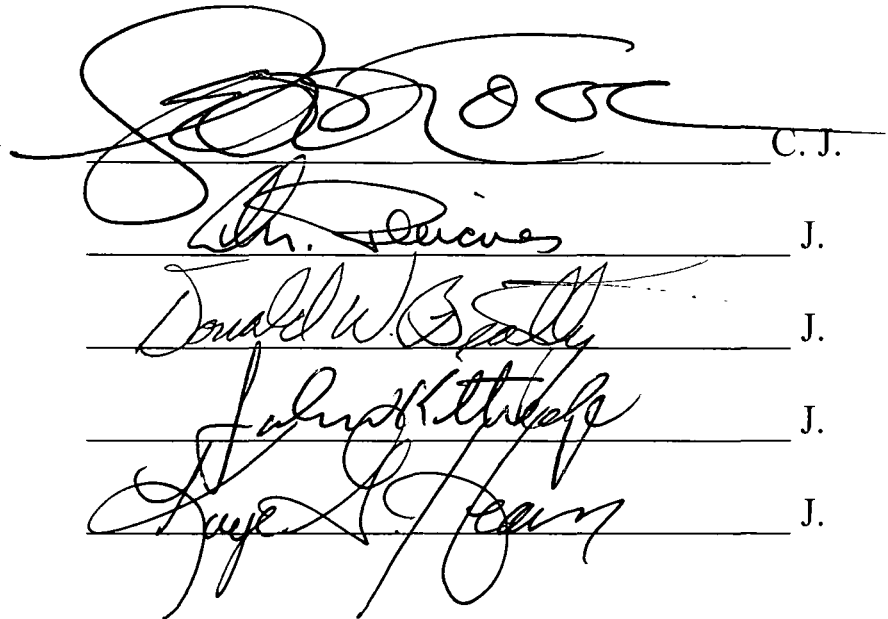 C. J.
J.
Donald W. Beatty J.
John Kittredge J.
Kaye G. Hearn J.